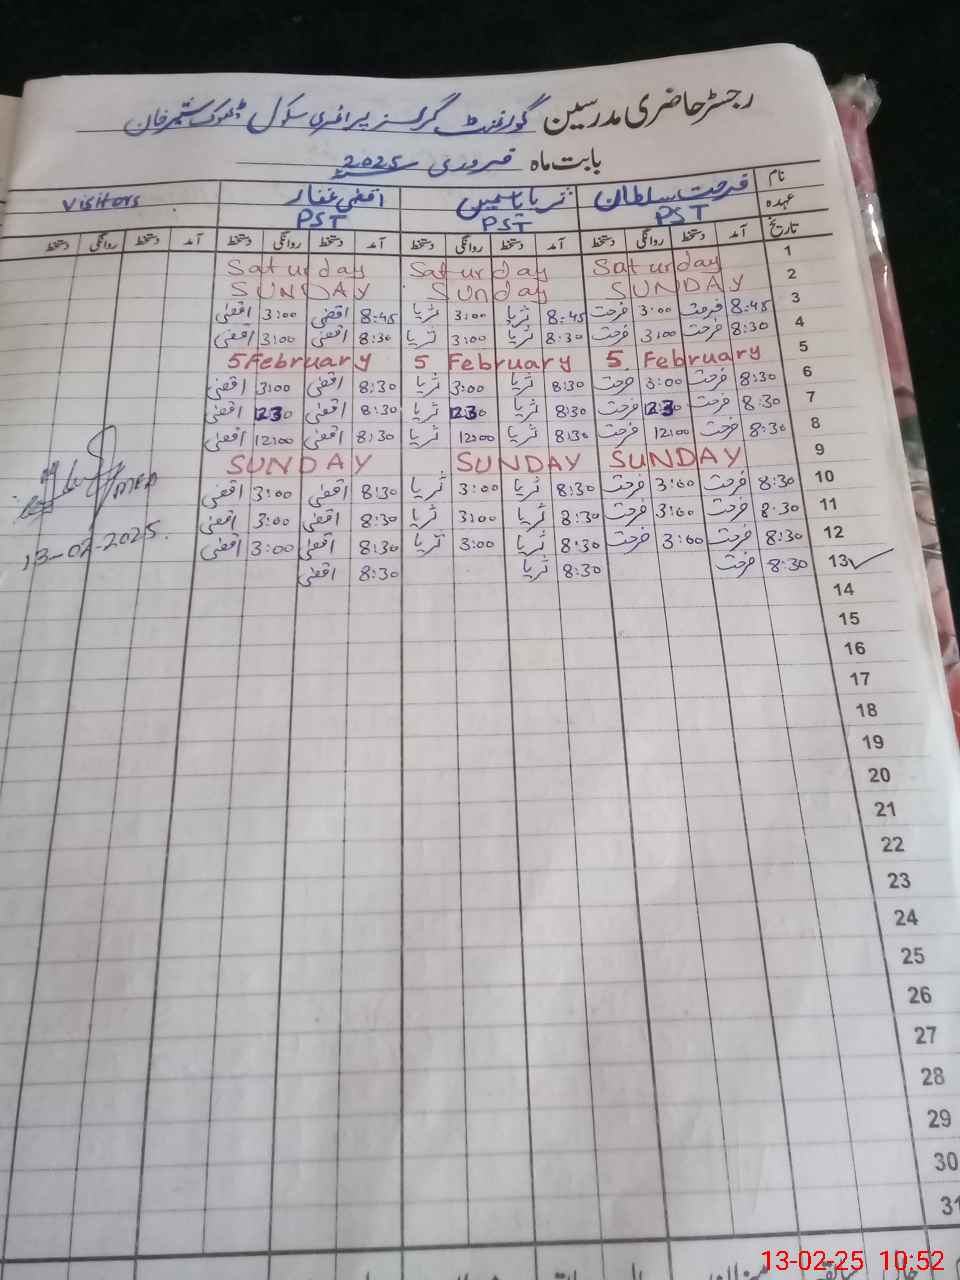 رجسٹر حاضری مدرسین گورنمنٹ گرلز پرائمری سکول ڈھوک
بابت ماہ فروری 2025
نام فرحت سلطان ثریا یاسمین اقصٰی غفار Visitors
عہدہ PST PST PST
تاریخ آمد دستخط روانگی دستخط آمد دستخط روانگی دستخط آمد دستخط روانگی دستخط آمد دستخط روانگی دستخط
1 Saturday Saturday Saturday
2 SUNDAY Sunday SUNDAY
3 8:45 فرحت 3:00 فرحت 8:45 ثریا 3:00 ثریا 8:45 اقصٰی 3:00 اقصٰی
4 8:30 فرحت 3:00 فرحت 8:30 ثریا 3:00 ثریا 8:30 اقصٰی 3:00 اقصٰی
5 5 February 5 February 5 February
6 8:30 فرحت 3:00 فرحت 8:30 ثریا 3:00 ثریا 8:30 اقصٰی 3:00 اقصٰی
7 8:30 فرحت 1230 فرحت 8:30 ثریا 1230 ثریا 8:30 اقصٰی 1230 اقصٰی
8 8:30 فرحت 12:00 فرحت 8:30 ثریا 12:00 ثریا 8:30 اقصٰی 12:00 اقصٰی
9 SUNDAY SUNDAY SUNDAY
10 8:30 فرحت 3:00 فرحت 8:30 ثریا 3:00 ثریا 8:30 اقصٰی 3:00 اقصٰی
11 8:30 فرحت 3:00 فرحت 8:30 ثریا 3:00 ثریا 8:30 اقصٰی 3:00 اقصٰی
12 8:30 فرحت 3:00 فرحت 8:30 ثریا 3:00 ثریا 8:30 اقصٰی 3:00 اقصٰی
13 8:30 فرحت 8:30 ثریا 8:30 اقصٰی
MEA
13-02-2025.
14
15
16
17
18
19
20
21
22
23
24
25
26
27
28
29
30
31
13-02-25 10:52